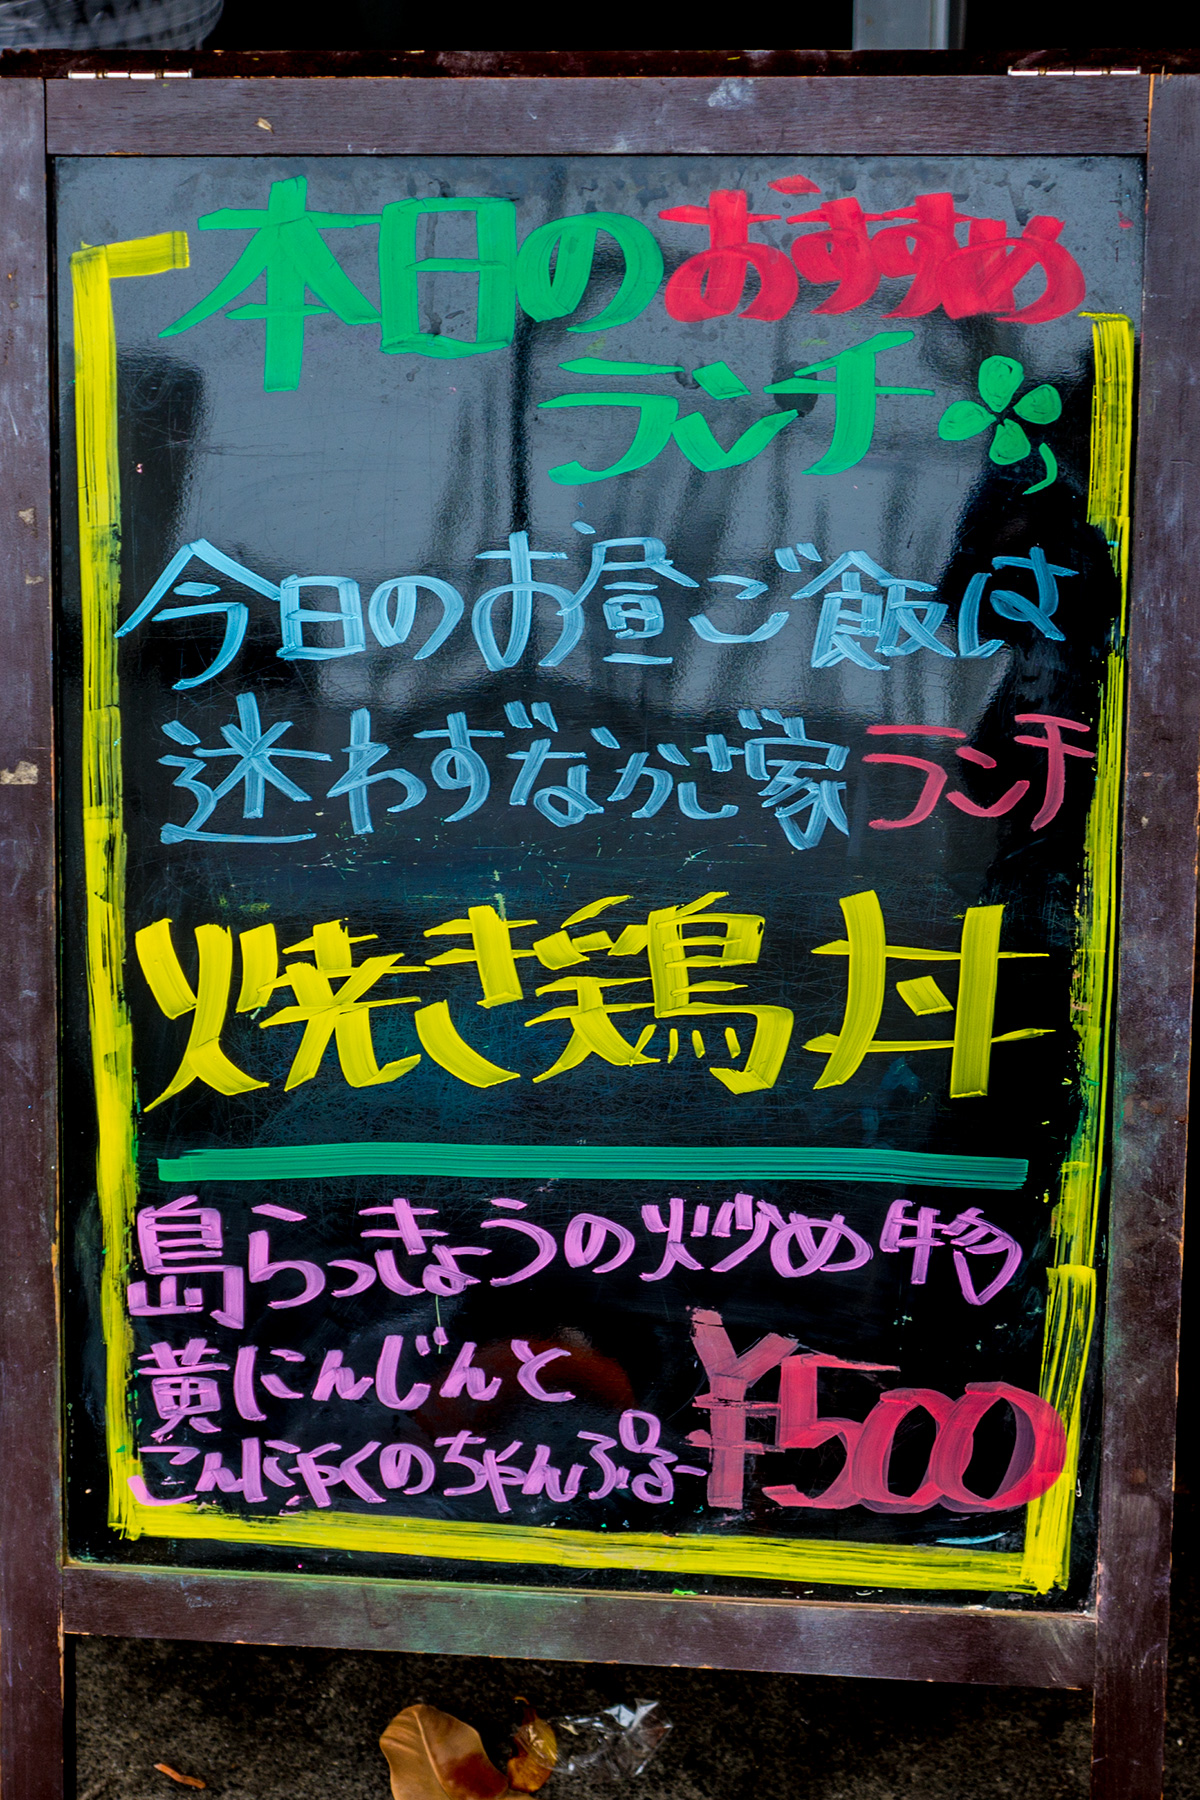 本日のおすすめ
ランチ
今日のお昼ご飯は
迷わずなかざ家ランチ
焼き鶏丼
島らっきょうの炒め物
黄にんじんと
こんにゃくのちゃんぷるー
¥500